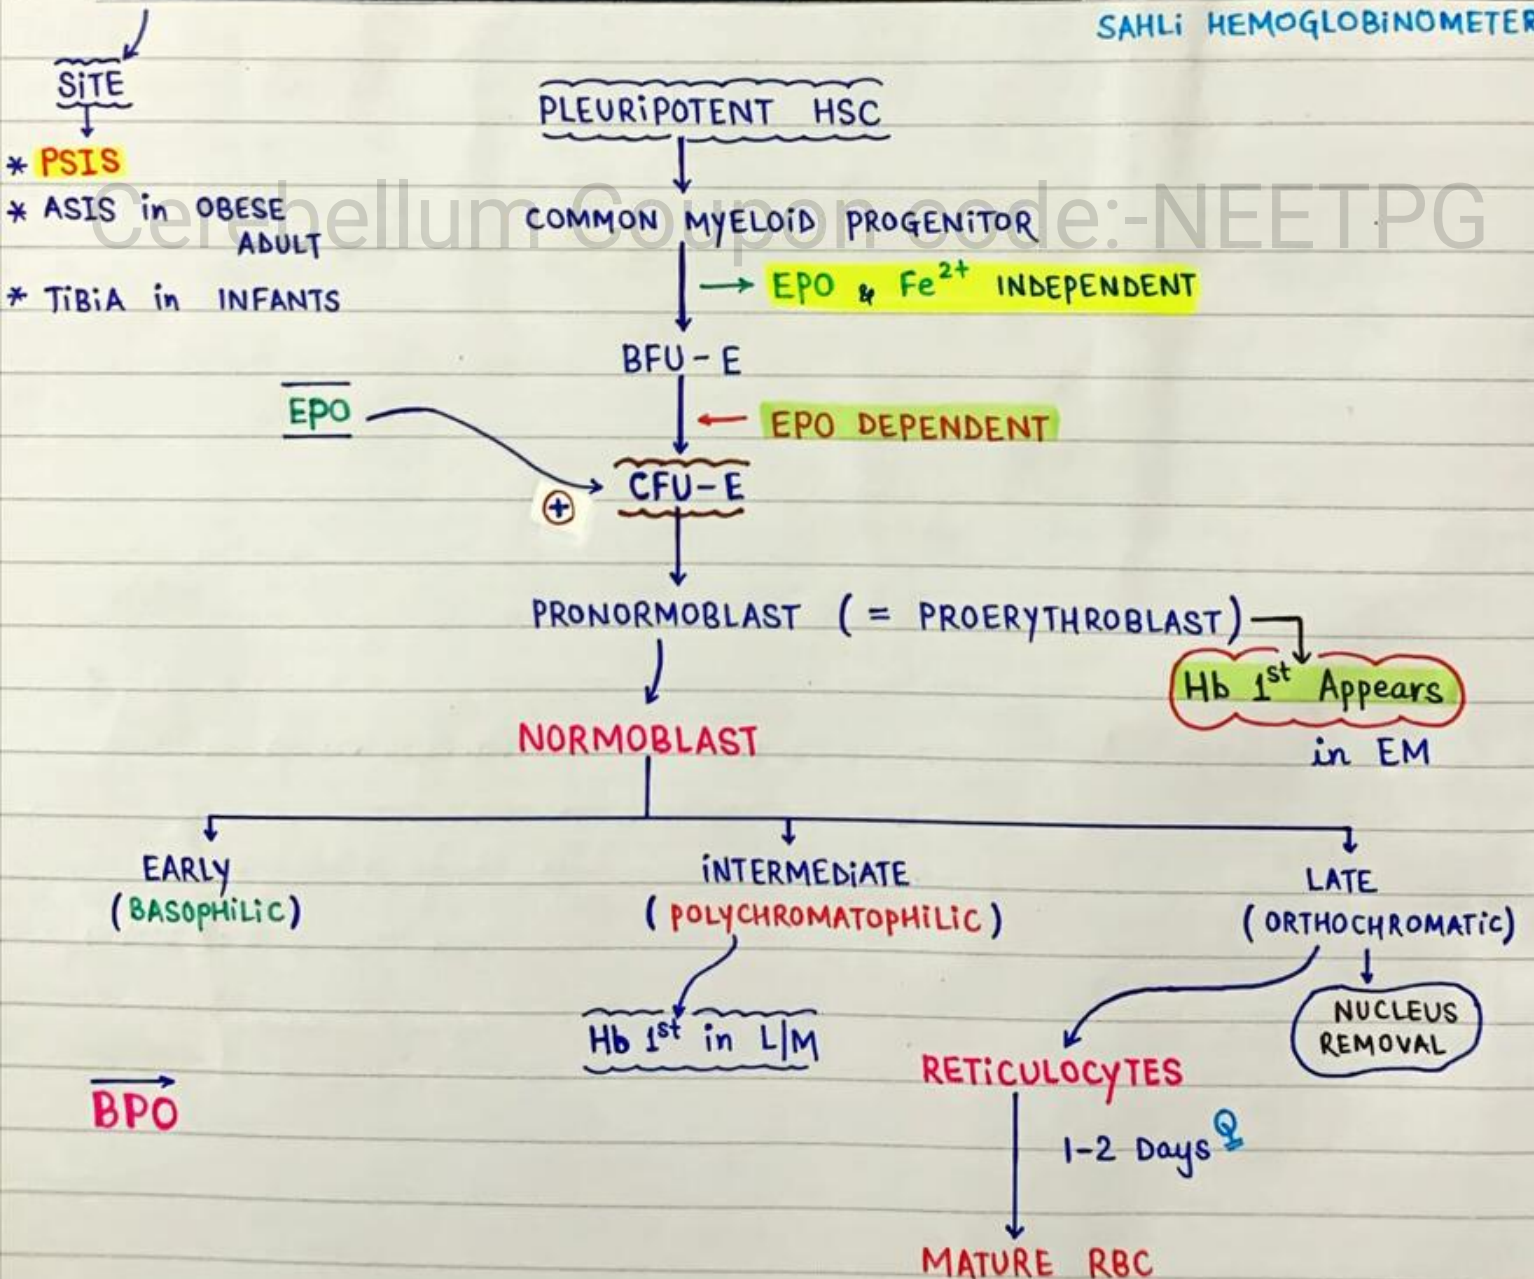 SAHLi HEMOGLOBiNOMETER
SiTE
* PSIS
* ASIS in OBESE
ADULT
* TiBiA in INFANTS
Cerebellum Coupon code:-NEETPG
PLEURiPOTENT HSC
COMMON MYELOiD PROGENiTOR
→ EPO & Fe²⁺ INDEPENDENT
BFU-E
EPO
← EPO DEPENDENT
+
CFU-E
PRONORMOBLAST (= PROERYTHROBLAST)
Hb 1st Appears
in EM
NORMOBLAST
EARLY
(BASOPHiLiC)
iNTERMEDiATE
(POLYCHROMATOPHiLiC)
LATE
(ORTHOCHROMATiC)
Hb 1st in L/M
NUCLEUS
REMOVAL
RETiCULOCYTES
BPO
1-2 Days Q
MATURE RBC